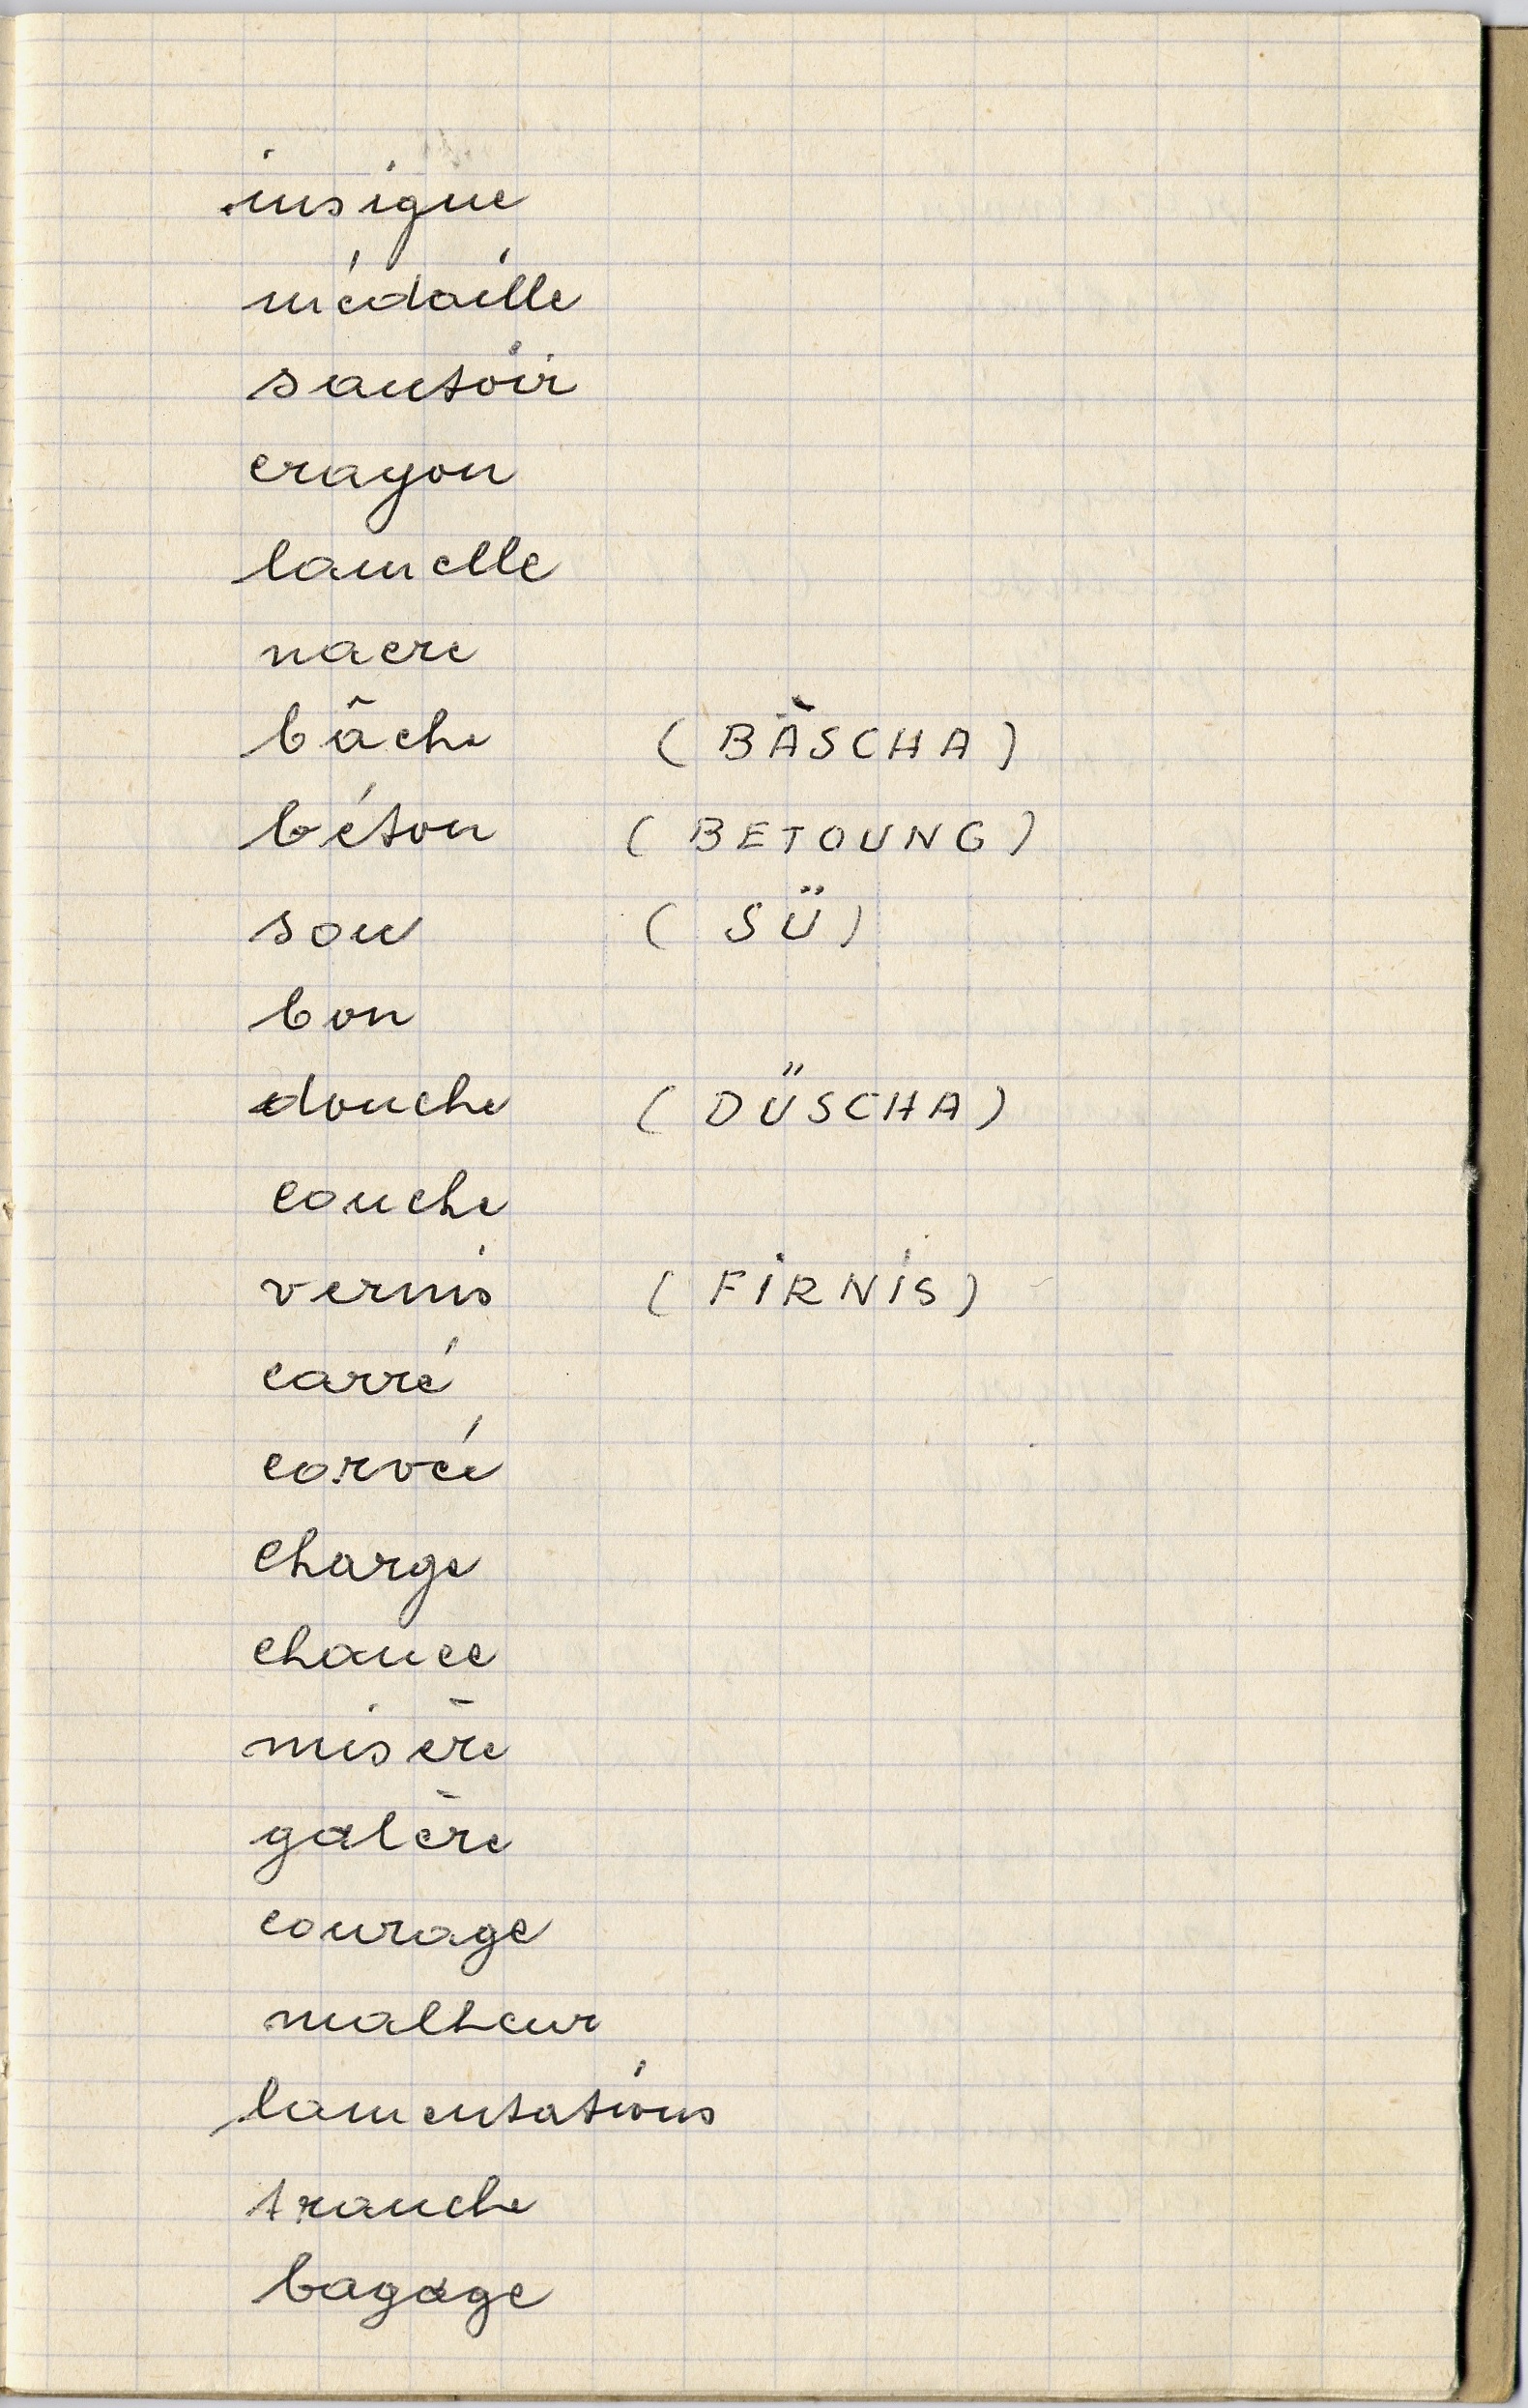 insigne
médaille
sautoir
crayon
lamelle
nacre
bâche (BÄSCHA)
béton (BETOUNG)
sou (SÜ)
bon
douche (DÜSCHA)
couche
vernis (FIRNIS)
carré
corvée
charge
chance
misère
galère
courage
malheur
lamentations
tranche
bagage